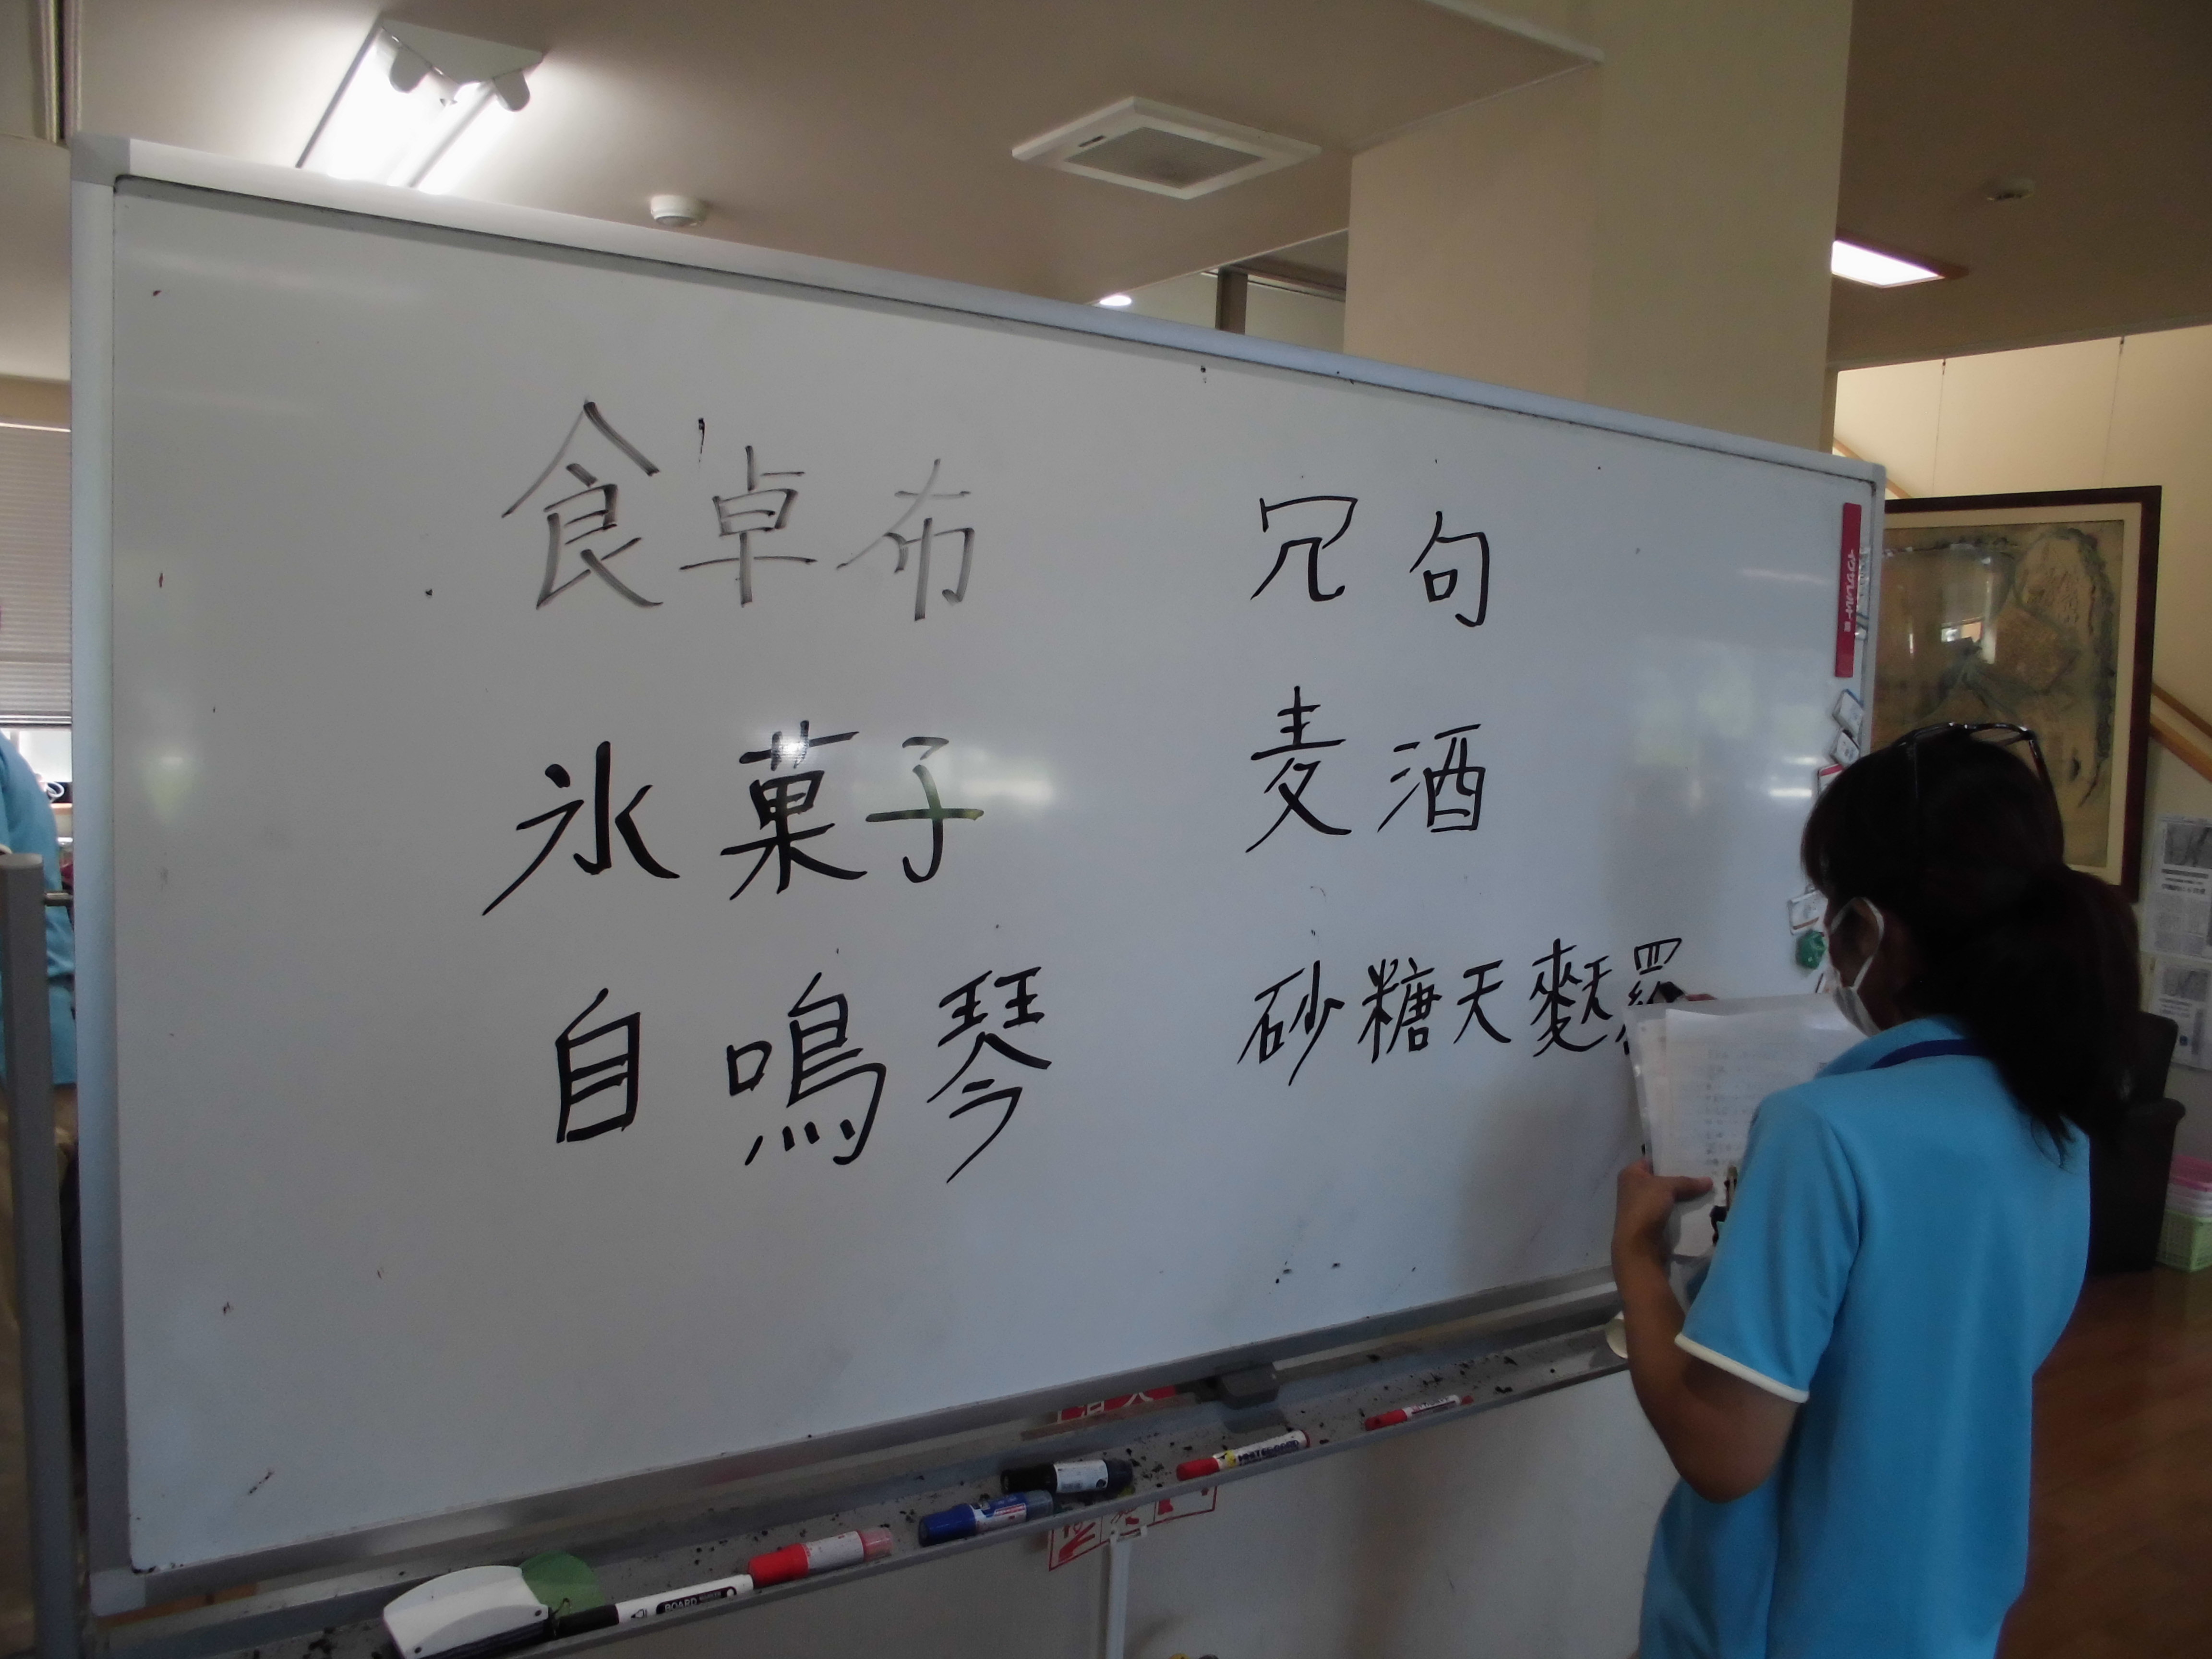 食卓布
冗句
氷菓子
麦酒
自鳴琴
砂糖天麩羅
BOARD
WHITEBOARD